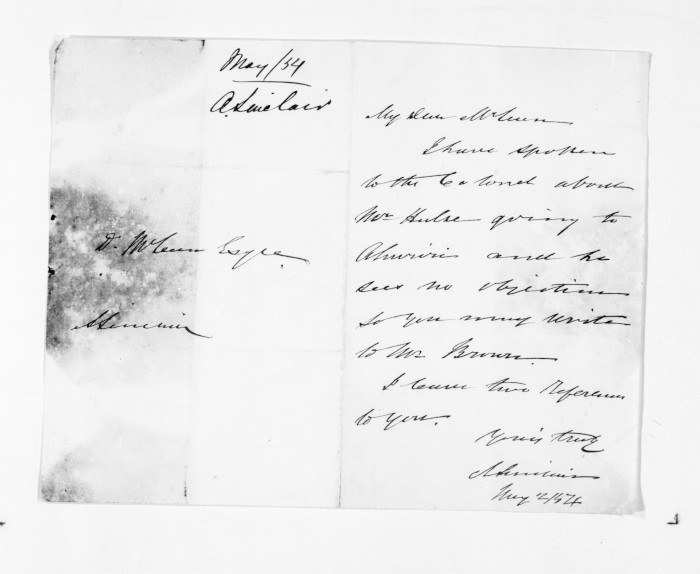 May/54
A. Sinclair
D. McLean Esqre.
ASinclair
My Dear McLean
I have spoken
to the Colonel about
Mr Hulse going to
Ahuriri and he
sees no objection
so you may write
to Mr Brown.
I leave two References
to you.
Yours truly
ASinclair
May 2/54